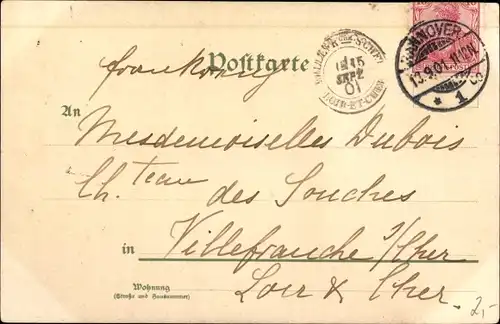 HANNOVER
13.9.01. 11-12N
* 1 S
15
SEPT
01
LOIR-ET-CHER
Postkarte
An
Mesdemoiselles Dubois
Ch.teau des Souches
in Villefranche s/Cher
Loir & Cher.
Wohnung
(Straße und Hausnummer)
2,-